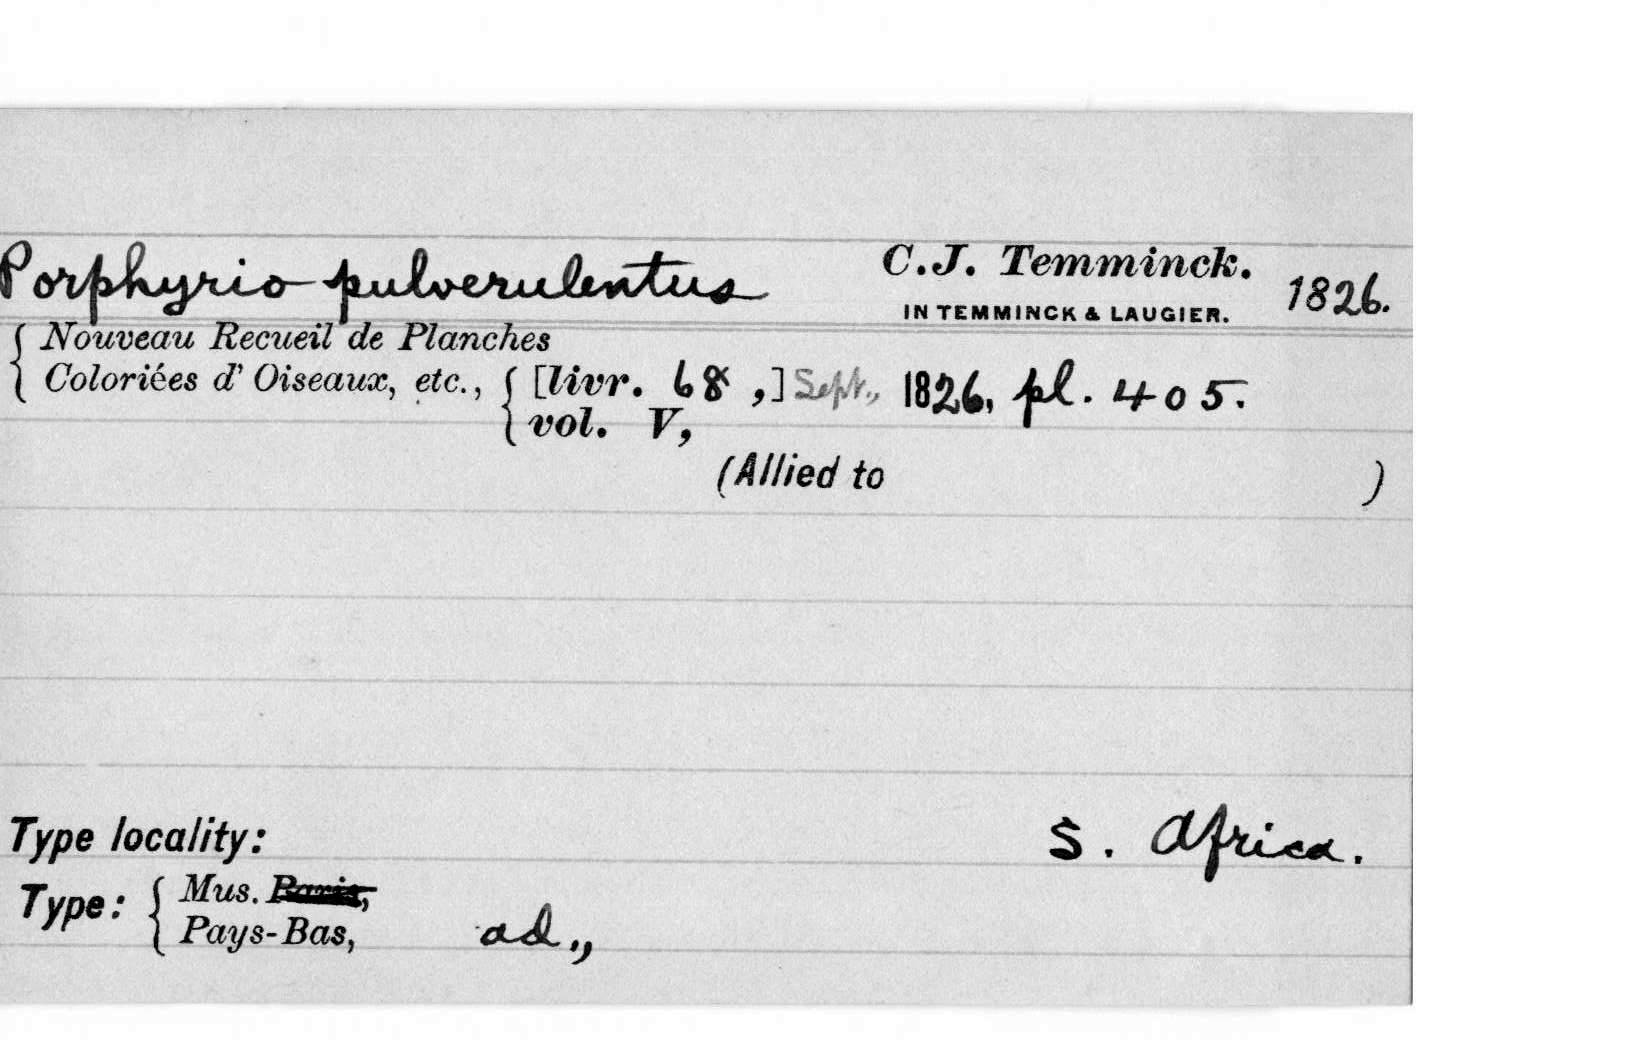 Porphyrio pulverulentus C.J. Temminck. 1826.
IN TEMMINCK & LAUGIER.
Nouveau Recueil de Planches
Coloriées d' Oiseaux, etc., [livr. 68 ,] Sept., 1826, pl. 405.
vol. V,
(Allied to )
Type locality: S. Africa.
Type: Mus. Paris,
Pays-Bas, ad.,